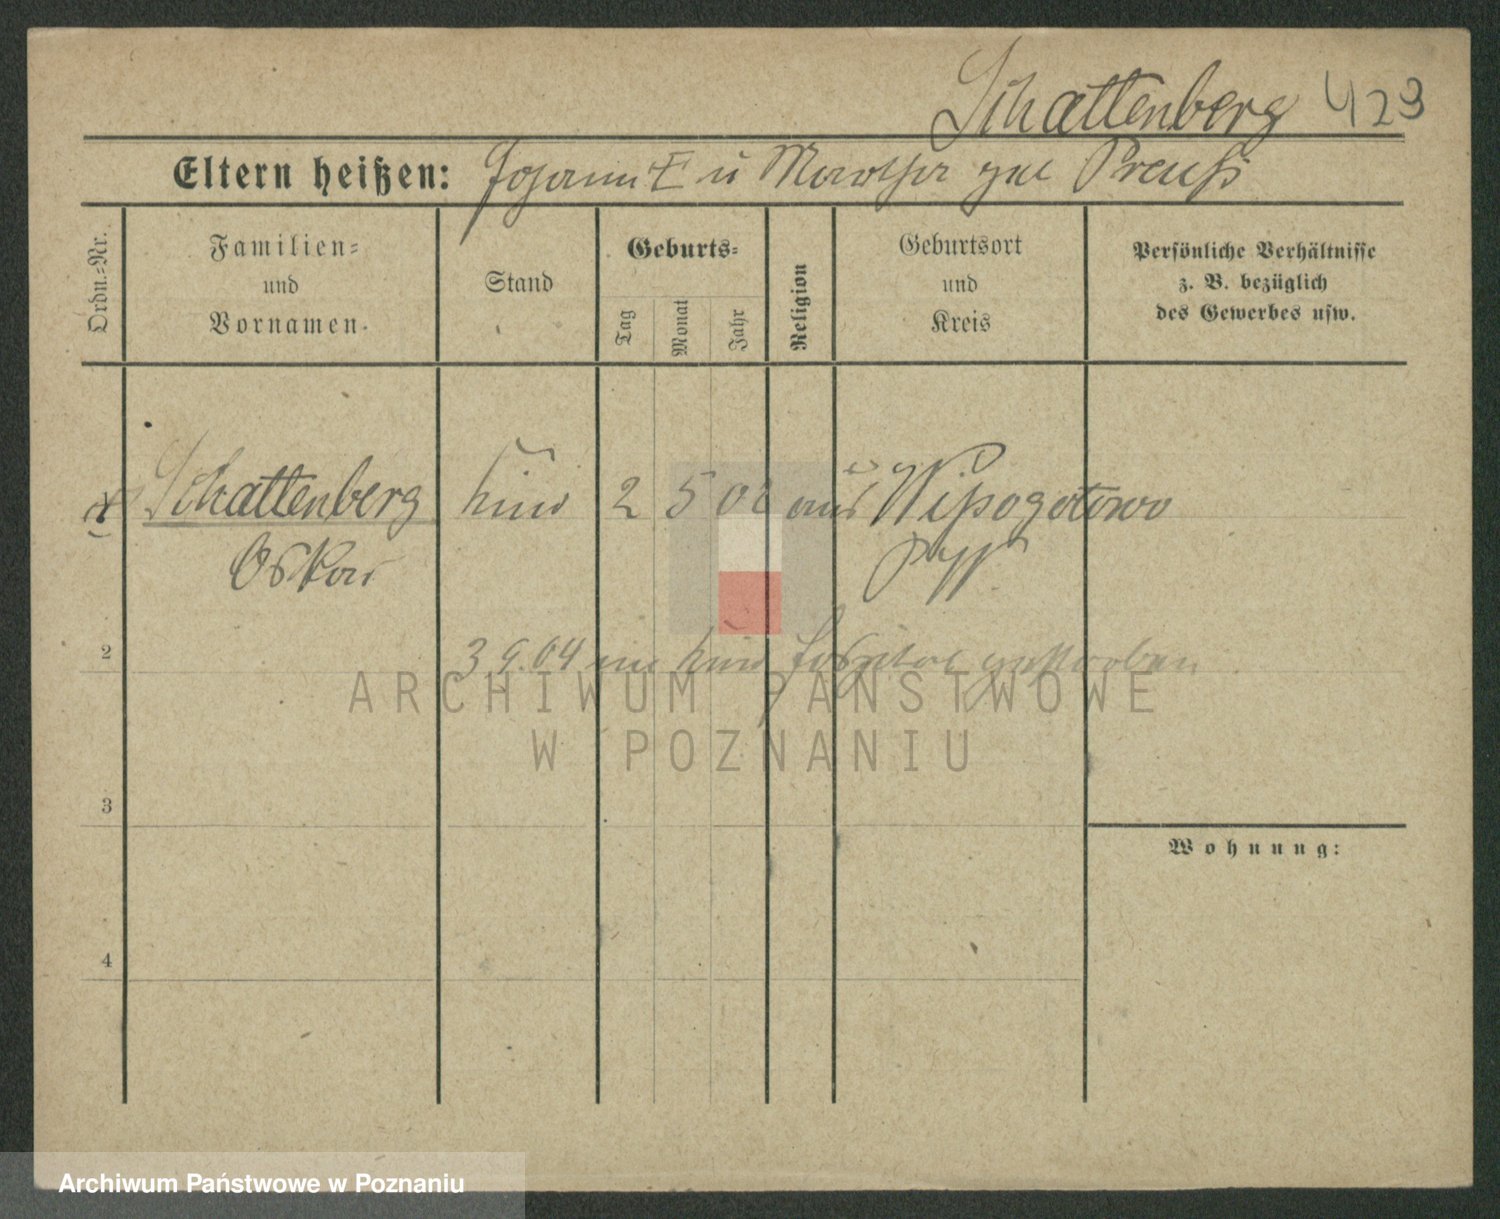 Schattenberg 423
Eltern heißen: Johann E u Martha geb Preuß
Ordn.-Nr.
Familien-
und
Vornamen.
Stand
Geburts-
Tag
Monat
Jahr
Religion
Geburtsort
und
Kreis
Persönliche Verhältnisse
z. B. bezüglich
des Gewerbes usw.
1 Schattenberg Kind 2 5 02
Oskar
2
3 9.04 im Kind Hospital gestorben
ARCHIWUM PAŃSTWOWE
W POZNANIU
3
Wohnung:
4
Archiwum Państwowe w Poznaniu